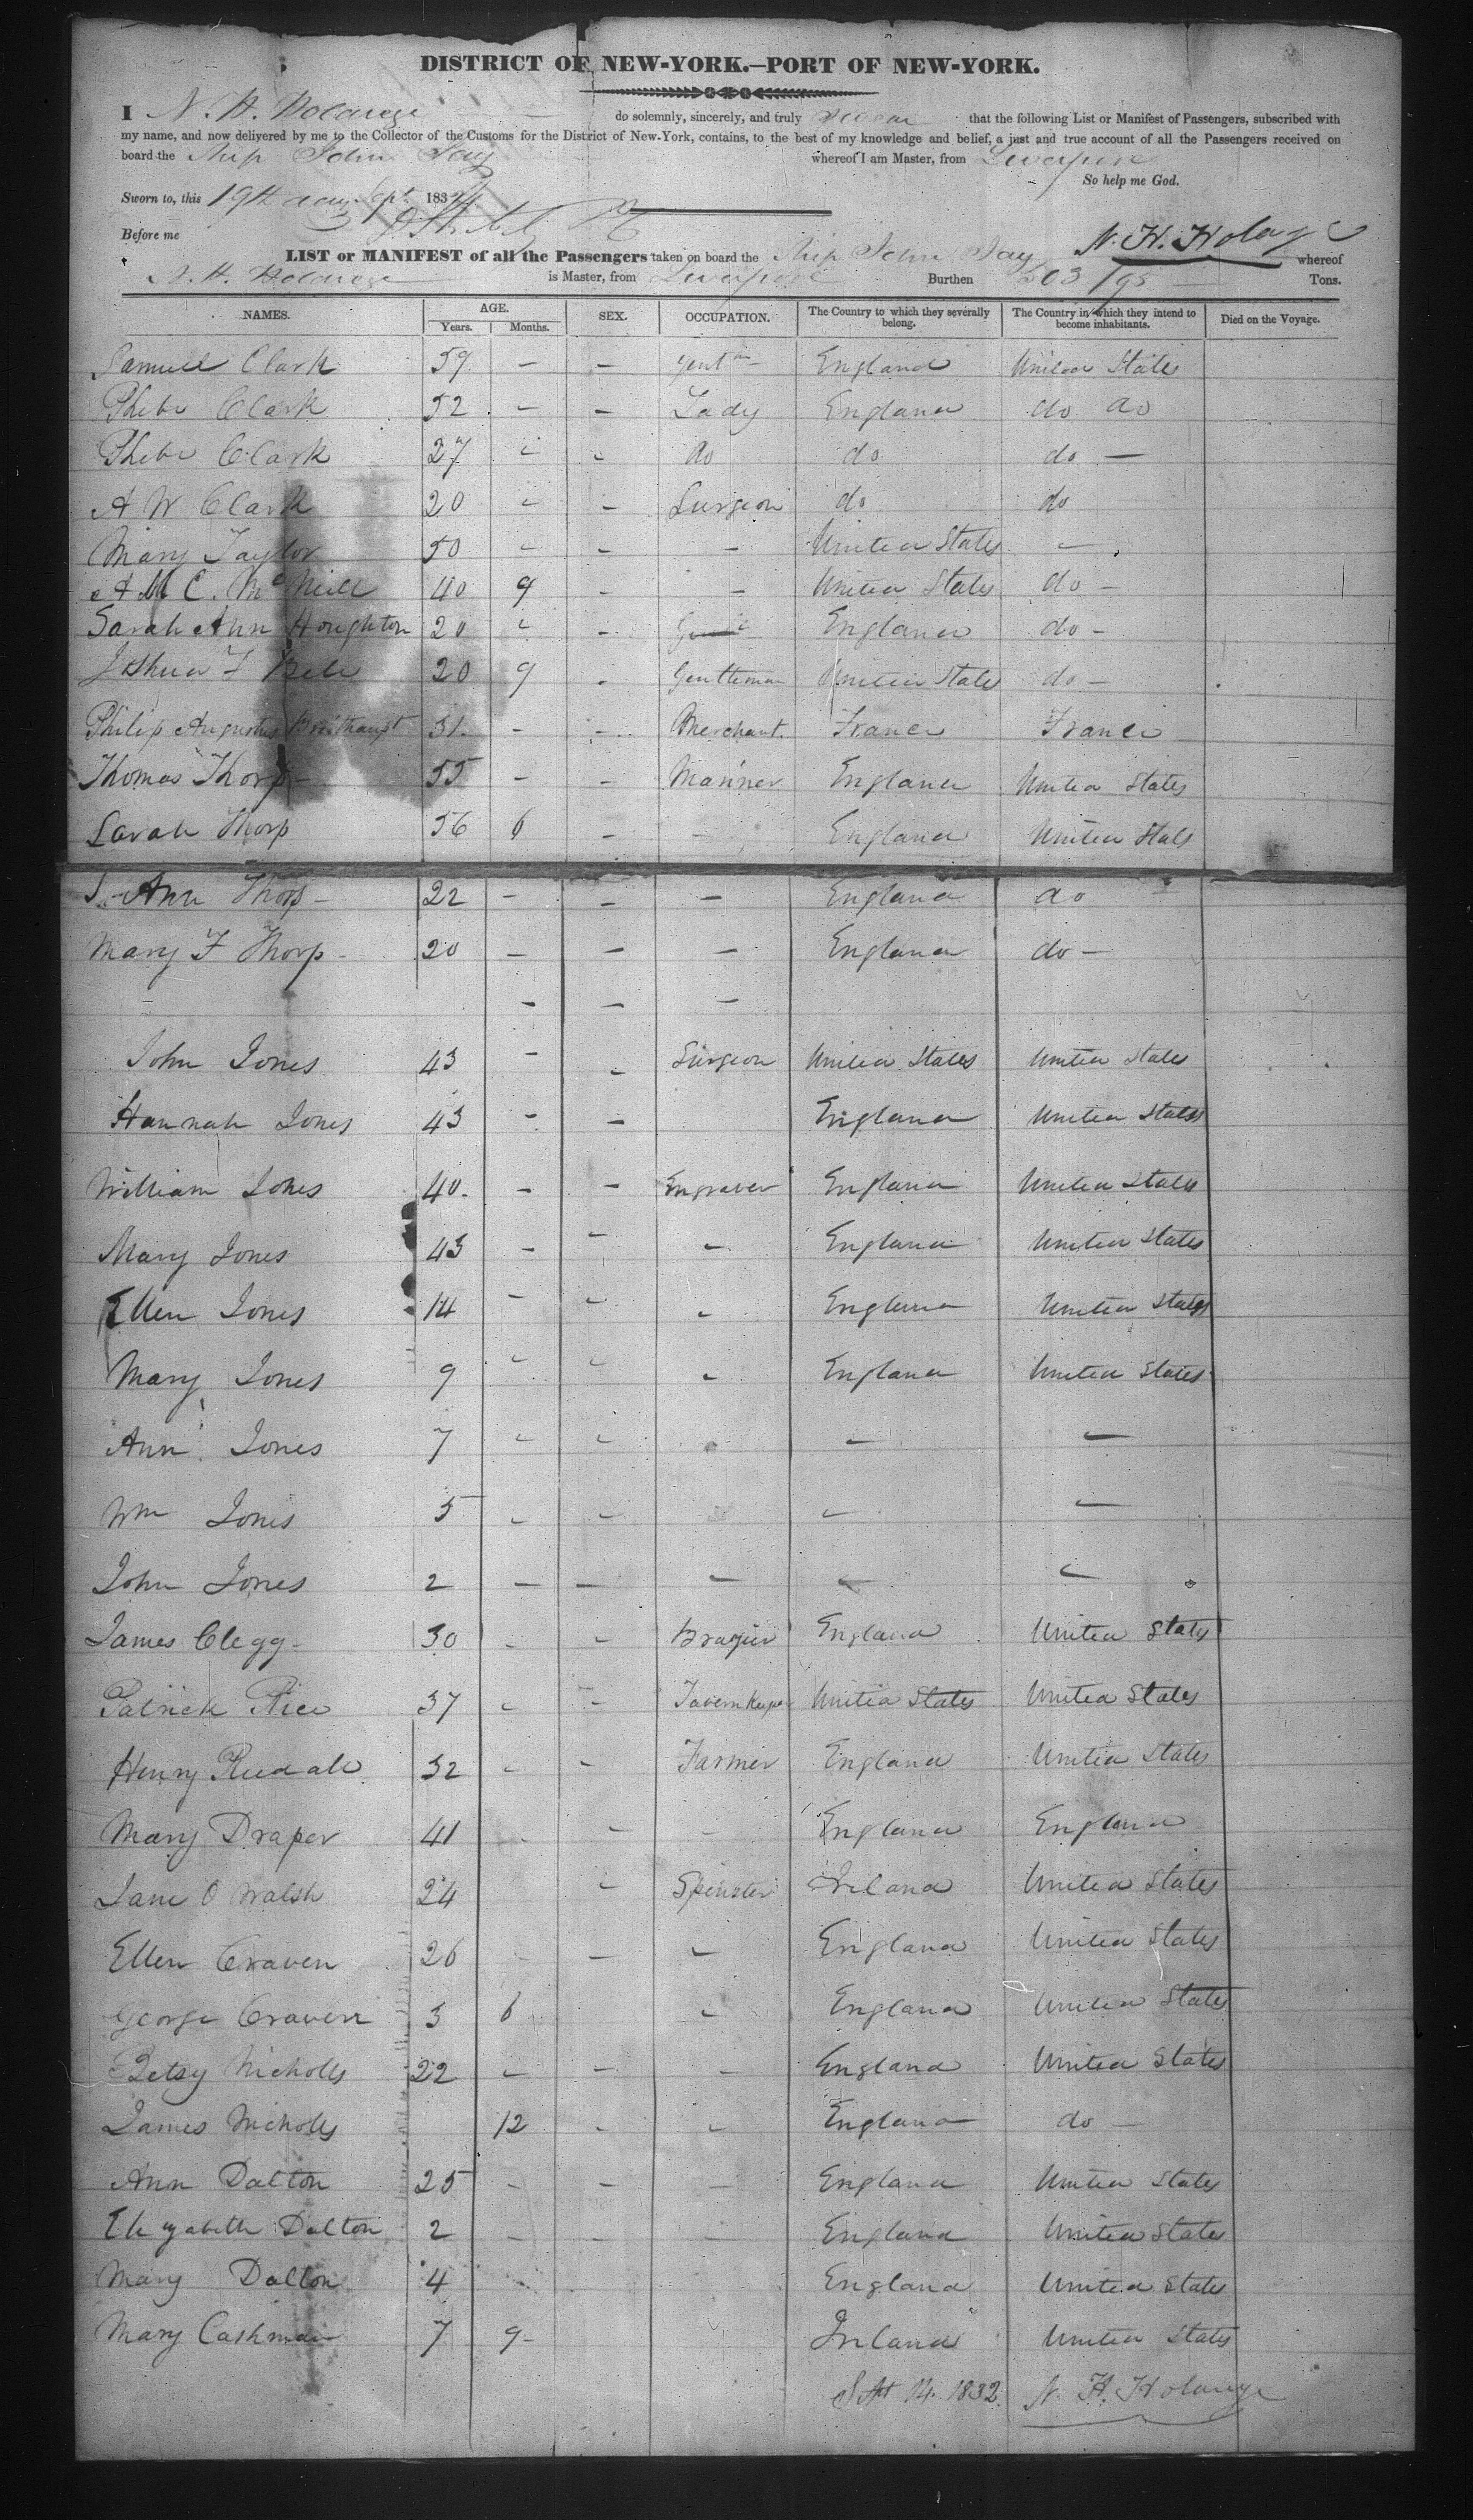 DISTRICT OF NEW-YORK.—PORT OF NEW-YORK.
I N. H. Holdrege do solemnly, sincerely, and truly swear that the following List or Manifest of Passengers, subscribed with
my name, and now delivered by me to the Collector of the Customs for the District of New-York, contains, to the best of my knowledge and belief, a just and true account of all the Passengers received on
board the Ship John Jay whereof I am Master, from Liverpool
So help me God.
Sworn to, this 19th day Sept. 183
Before me
N. H. Holdrege
LIST or MANIFEST of all the Passengers taken on board the Ship John Jay whereof
N. H. Holdrege is Master, from Liverpool Burthen 503 /95 Tons.
NAMES. AGE. Years. Months. SEX. OCCUPATION. The Country to which they severally belong. The Country in which they intend to become inhabitants. Died on the Voyage.
Samuel Clark 59 — — Gentn England United States
Phebe Clark 52 - - Lady England do do
Phebe Clark 27 - - do do do —
A W Clark 20 - - Surgeon do do
Mary Taylor 50 - - - United States -
A M C. McNeill 40 9 - - United States do -
Sarah Ann Houghton 20 - - England do -
Joshua F Bell 20 9 - Gentleman United States do -
Philip Augustus 31 - - Merchant France France
Thomas Thorp - 55 - - Mariner England United States
Sarah Thorp 56 6 - - England United States
S. Ann Thorp - 22 - - - England do
Mary F Thorp - 20 - - - England do -
- - -
John Jones 43 - - Surgeon United States United States
Hannah Jones 43 - - England United States
William Jones 40 - - Engraver England United States
Mary Jones 43 - - - England United States
Ellen Jones 14 - - - England United States
Mary Jones 9 - - - England United States
Ann Jones 7 - - - -
Wm Jones 5 - - - -
John Jones 2 - - - - -
James Clegg - 30 - - Brazier England United States
Patrick Rice 37 - - Tavern Keeper United States United States
Henry 32 - - Farmer England United States
Mary Draper 41 - - - England England
Jane O Walsh 24 - Spinster Ireland United States
Ellen Craven 26 - - England United States
George Craven 3 6 - England United States
Betsy Nicholls 22 - - - England United States
James Nicholls 12 - - England do -
Ann Dalton 25 - - - England United States
Elizabeth Dalton 2 - - - England United States
Mary Dalton 4 England United States
Mary Cashman 7 9 - Ireland United States
Sept 14. 1832. N. H. Holdrege